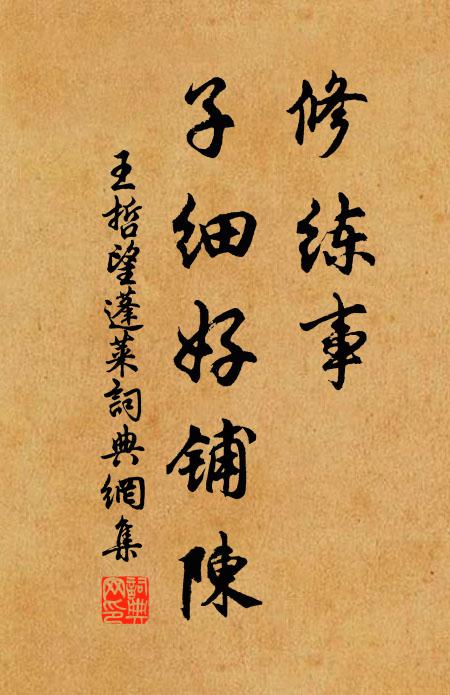 修练事
子细好铺陳
王哲望蓬莱詞典網集
詞典
网印